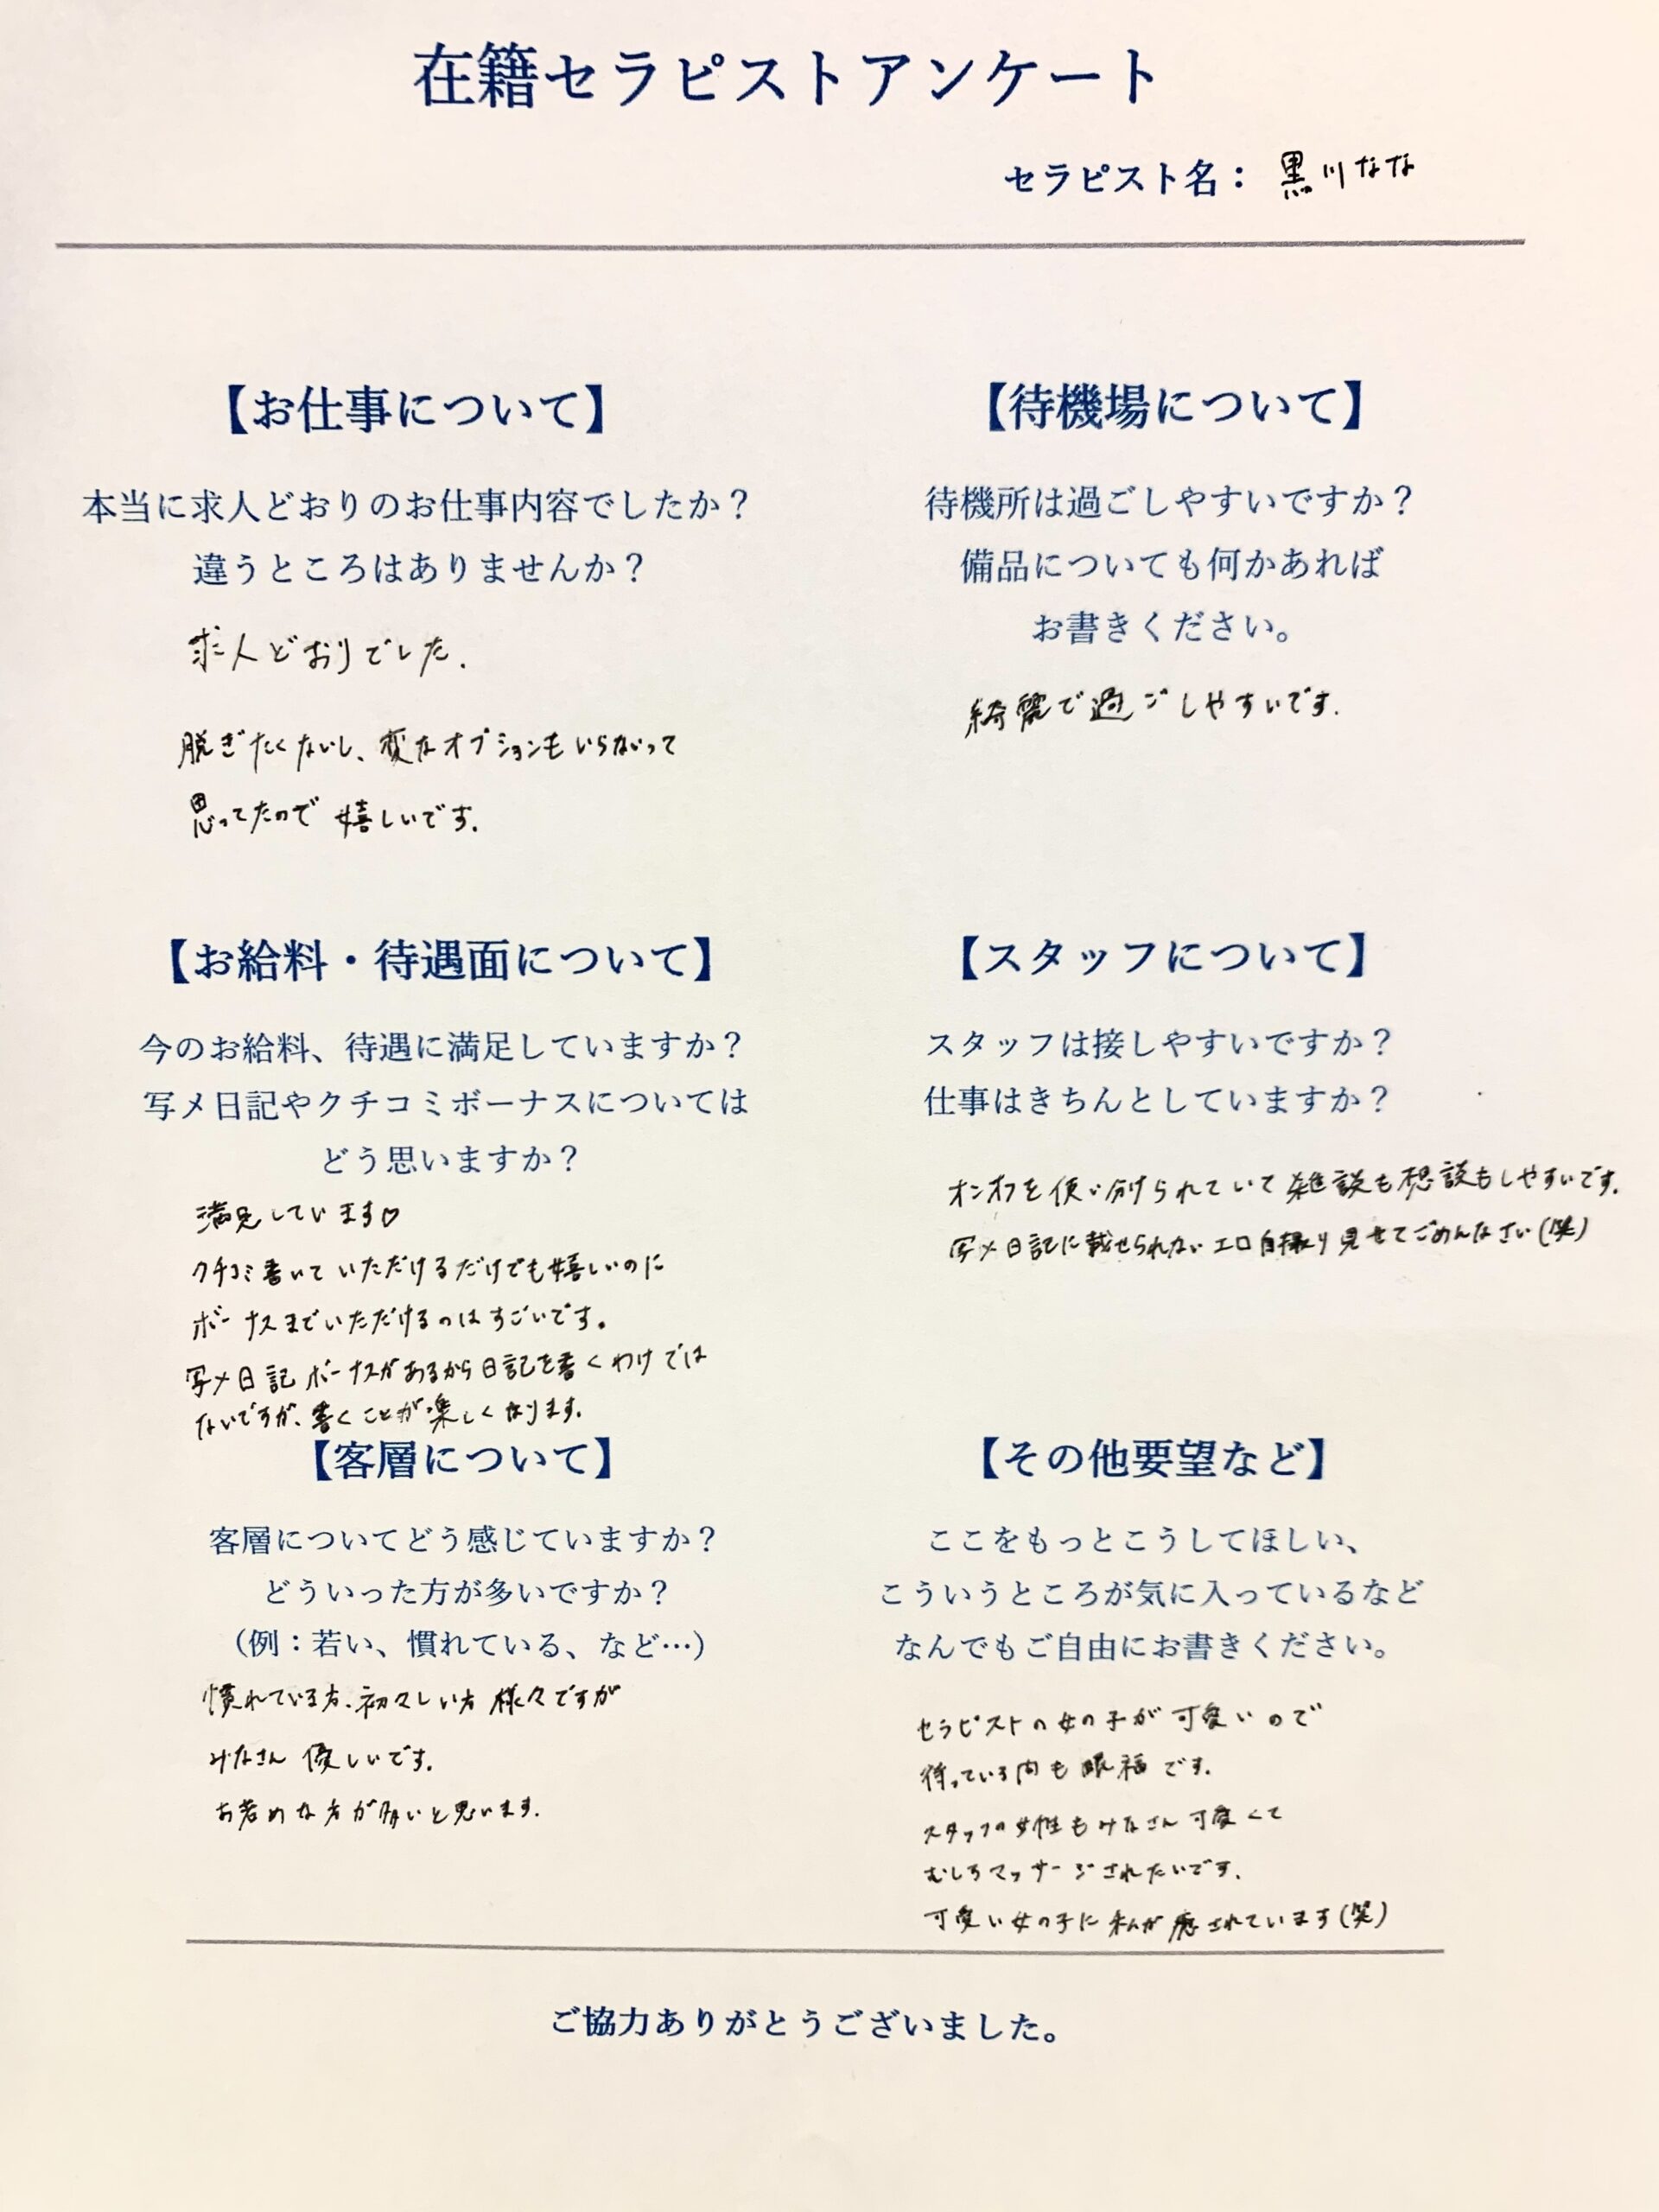 在籍セラピストアンケート
セラピスト名： 黒川なな
【お仕事について】
本当に求人どおりのお仕事内容でしたか？
違うところはありませんか？
求人どおりでした.
脱ぎたくないし、変なオプションもいらないって
思ってたので 嬉しいです.
【待機場について】
待機所は過ごしやすいですか？
備品についても何かあれば
お書きください。
綺麗で過ごしやすいです.
【お給料・待遇面について】
今のお給料、待遇に満足していますか？
写メ日記やクチコミボーナスについては
どう思いますか？
満足しています♡
クチコミ書いていただけるだけでも嬉しいのに
ボーナスまでいただけるのはすごいです。
写メ日記ボーナスがあるから日記を書くわけでは
ないですが、書くことが楽しくなります.
【スタッフについて】
スタッフは接しやすいですか？
仕事はきちんとしていますか？
オンオフを使い分けられていて雑談も相談もしやすいです.
写メ日記に載せられないエロ自撮り見せてごめんなさい(笑)
【客層について】
客層についてどう感じていますか？
どういった方が多いですか？
（例：若い、慣れている、など…）
慣れている方、初々しい方 様々ですが
みなさん 優しいです.
お若めな方が多いと思います.
【その他要望など】
ここをもっとこうしてほしい、
こういうところが気に入っているなど
なんでもご自由にお書きください。
セラピストの女の子が可愛いので
待っている内も眼福です.
スタッフの女性もみなさん可愛くて
むしろマッサージされたいです.
可愛い女の子に私が癒されています(笑)
ご協力ありがとうございました。